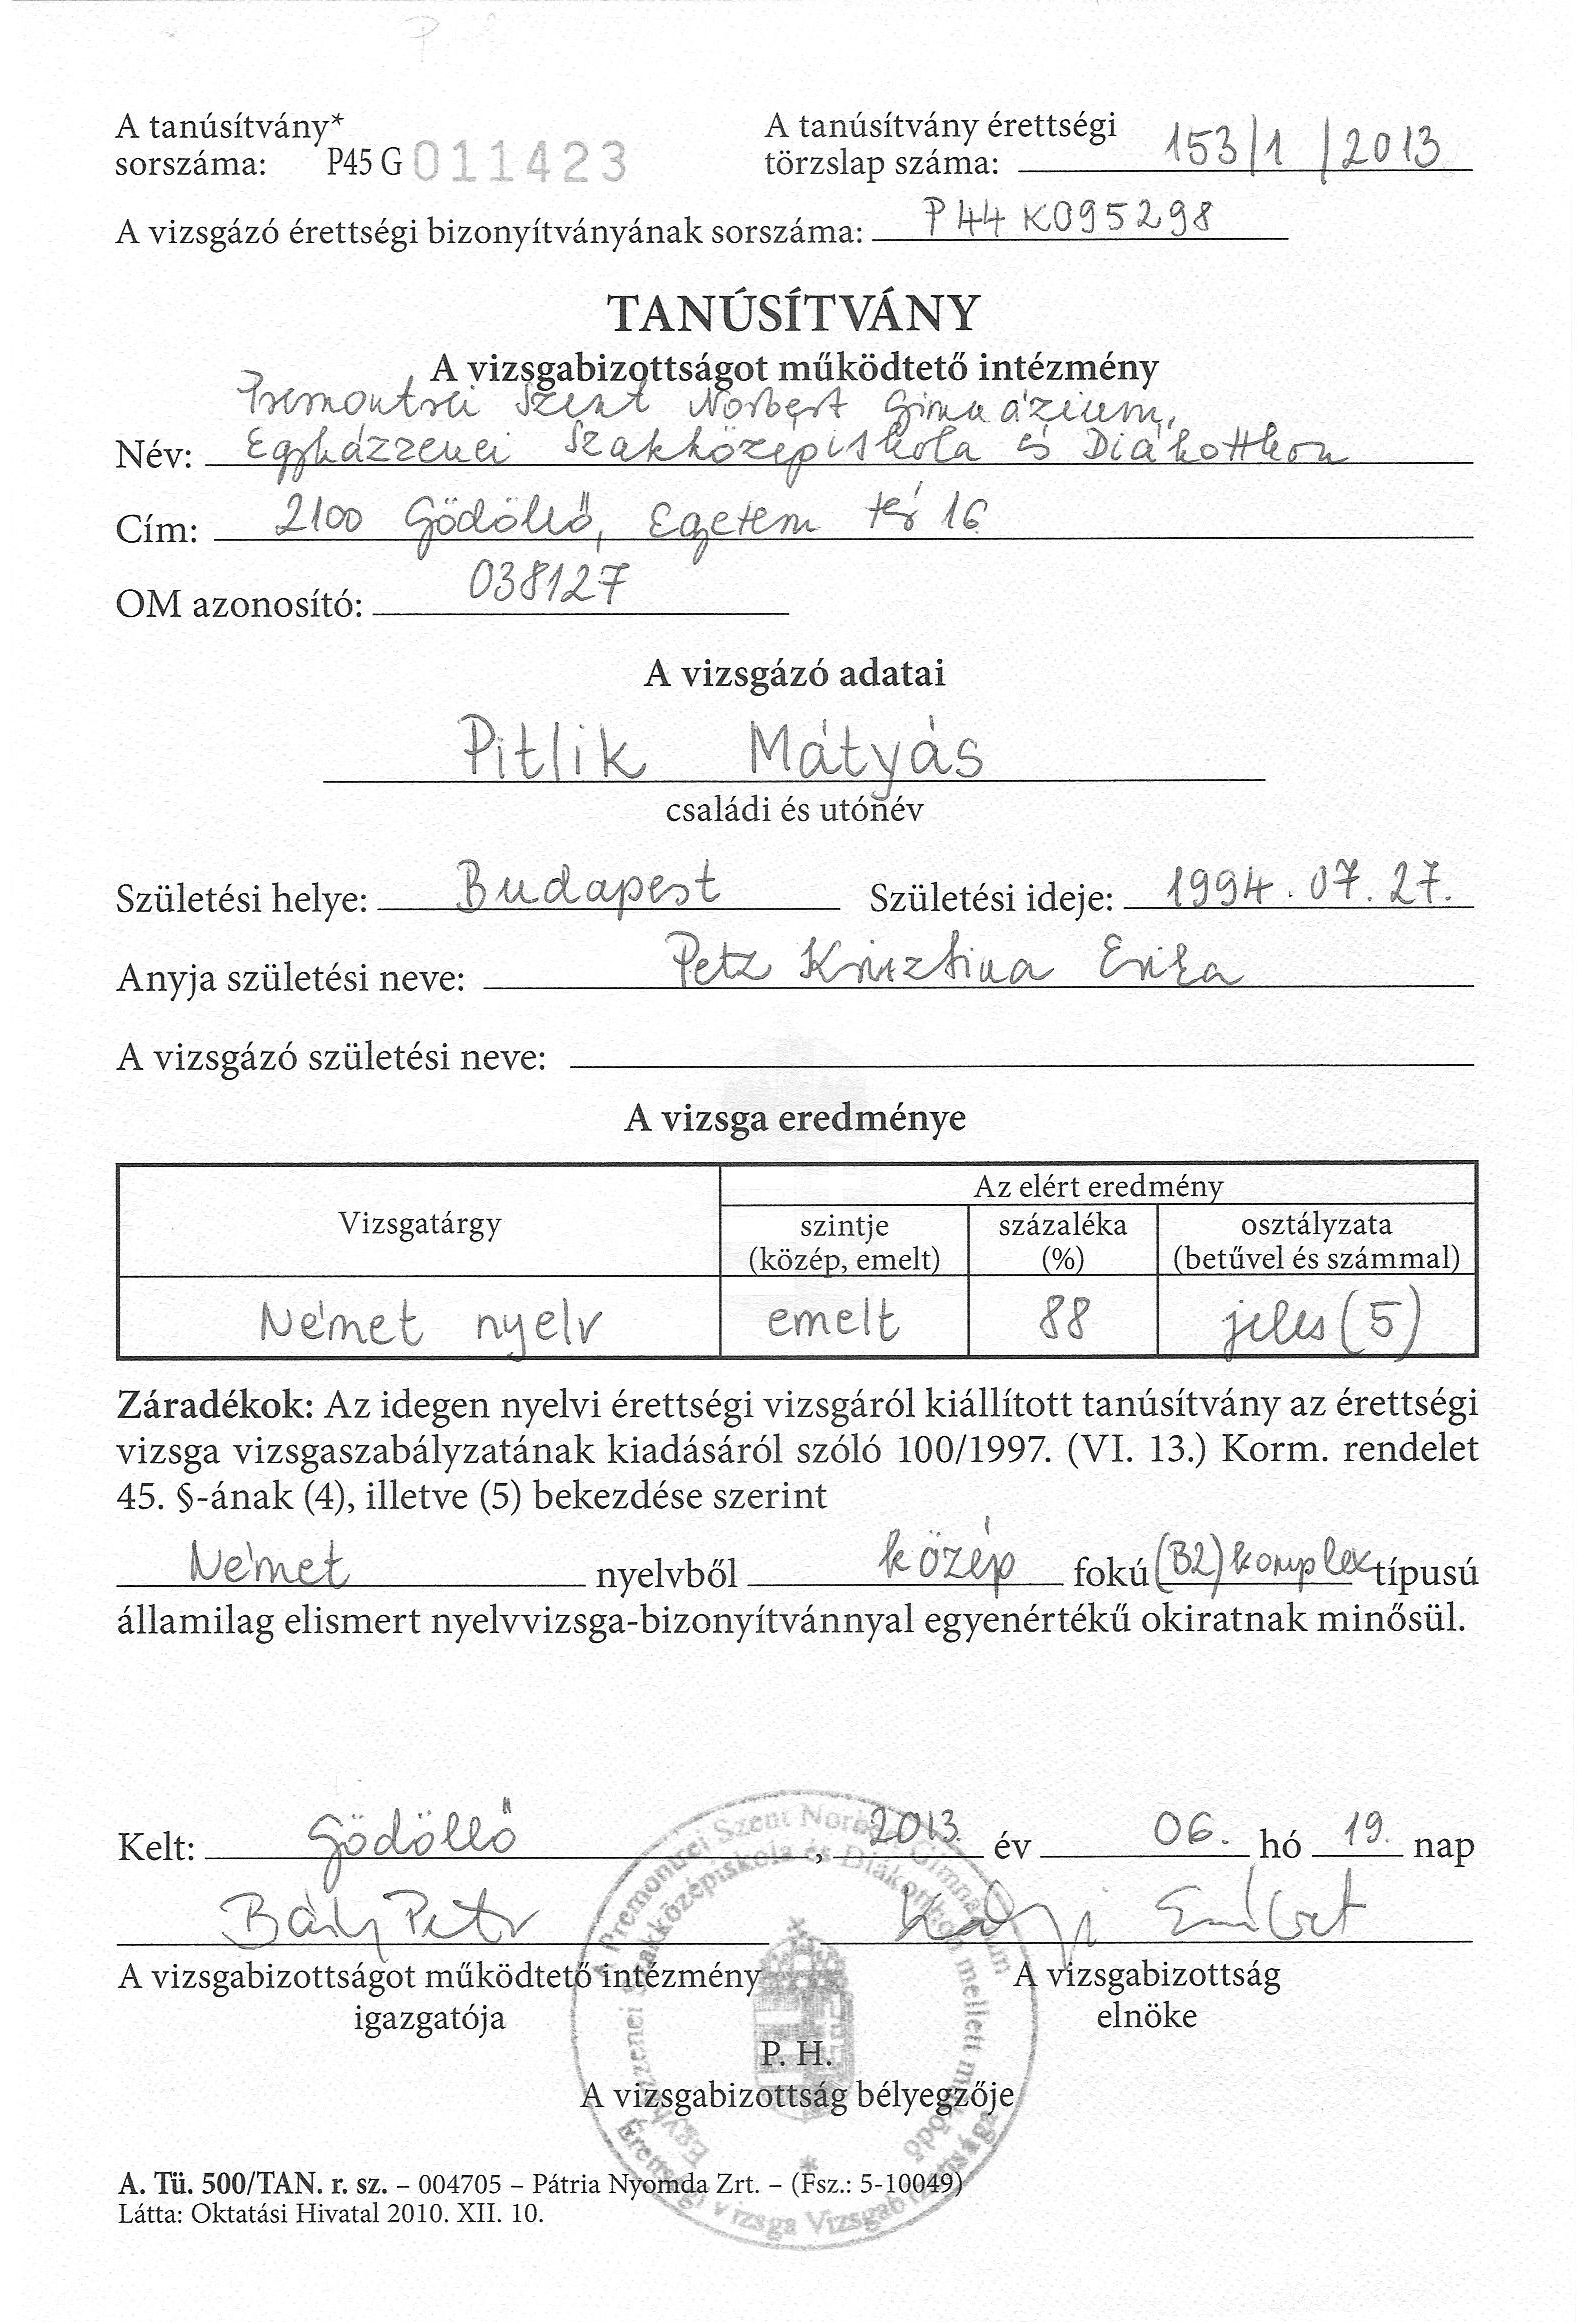 A tanúsítvány*
sorszáma: P45 G 011423
A tanúsítvány érettségi
törzslap száma: 153/1 /2013
A vizsgázó érettségi bizonyítványának sorszáma: P44 K095298
TANÚSÍTVÁNY
A vizsgabizottságot működtető intézmény
Premontrei Szent Norbert Gimnázium,
Név: Egyházzenei Szakközépiskola és Diákotthon
Cím: 2100 Gödöllő, Egetem tér 16
OM azonosító: 038127
A vizsgázó adatai
Pitlik Mátyás
családi és utónév
Születési helye: Budapest Születési ideje: 1994. 07. 27.
Anyja születési neve: Petz Krisztina Erika
A vizsgázó születési neve:
A vizsga eredménye
Vizsgatárgy
Az elért eredmény
szintje
(közép, emelt)
százaléka
(%)
osztályzata
(betűvel és számmal)
Német nyelv emelt 88 jeles (5)
Záradékok: Az idegen nyelvi érettségi vizsgáról kiállított tanúsítvány az érettségi
vizsga vizsgaszabályzatának kiadásáról szóló 100/1997. (VI. 13.) Korm. rendelet
45. §-ának (4), illetve (5) bekezdése szerint
Német nyelvből közép fokú (B2) komplex típusú
államilag elismert nyelvvizsga-bizonyítvánnyal egyenértékű okiratnak minősül.
Kelt: Gödöllő, 2013. év 06. hó 19. nap
A vizsgabizottságot működtető intézmény
igazgatója
A vizsgabizottság
elnöke
P. H.
A vizsgabizottság bélyegzője
Premontrei Szent Norbert Gimnázium
Egyházzenei Szakközépiskola és Diákotthon mellett működő
Érettségi Vizsga Vizsgabizottsága
A. Tü. 500/TAN. r. sz. – 004705 – Pátria Nyomda Zrt. – (Fsz.: 5-10049)
Látta: Oktatási Hivatal 2010. XII. 10.